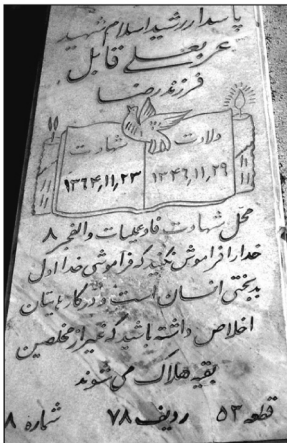 پاسدار رشید اسلام شهید
عربعلی قابل
فرزند رضا
ولادت شهادت
۱۳۴۶,۱۱,۲۹ ۱۳۶۴,۱۱,۲۳
محل شهادت فاو عملیات والفجر ۸
خدا را فراموش نکنید که فراموشی خدا اول
بدبختی انسان است و در کارهایتان
اخلاص داشته باشید که غیر از مخلصین
بقیه هلاک می شوند
قطعه ۵۳ ردیف ۷۸ شماره ۸